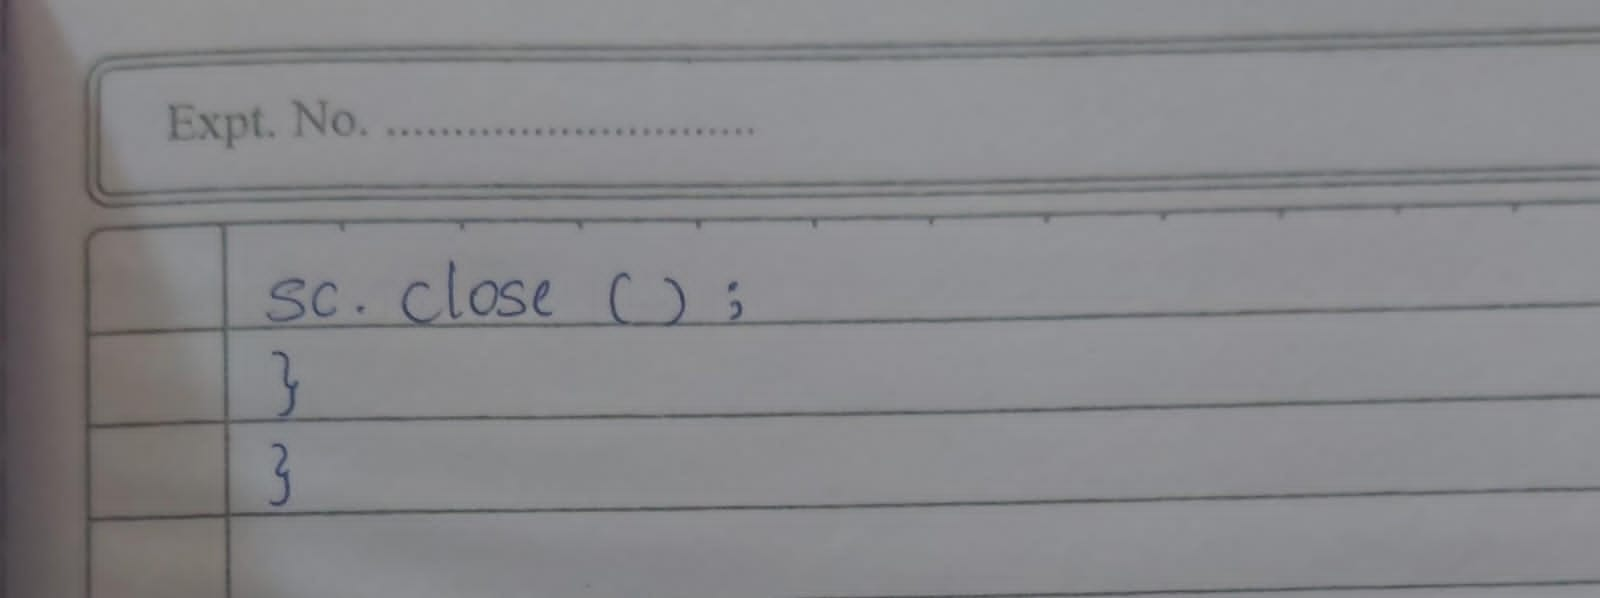 Expt. No. ............................
sc. close () ;
}
}